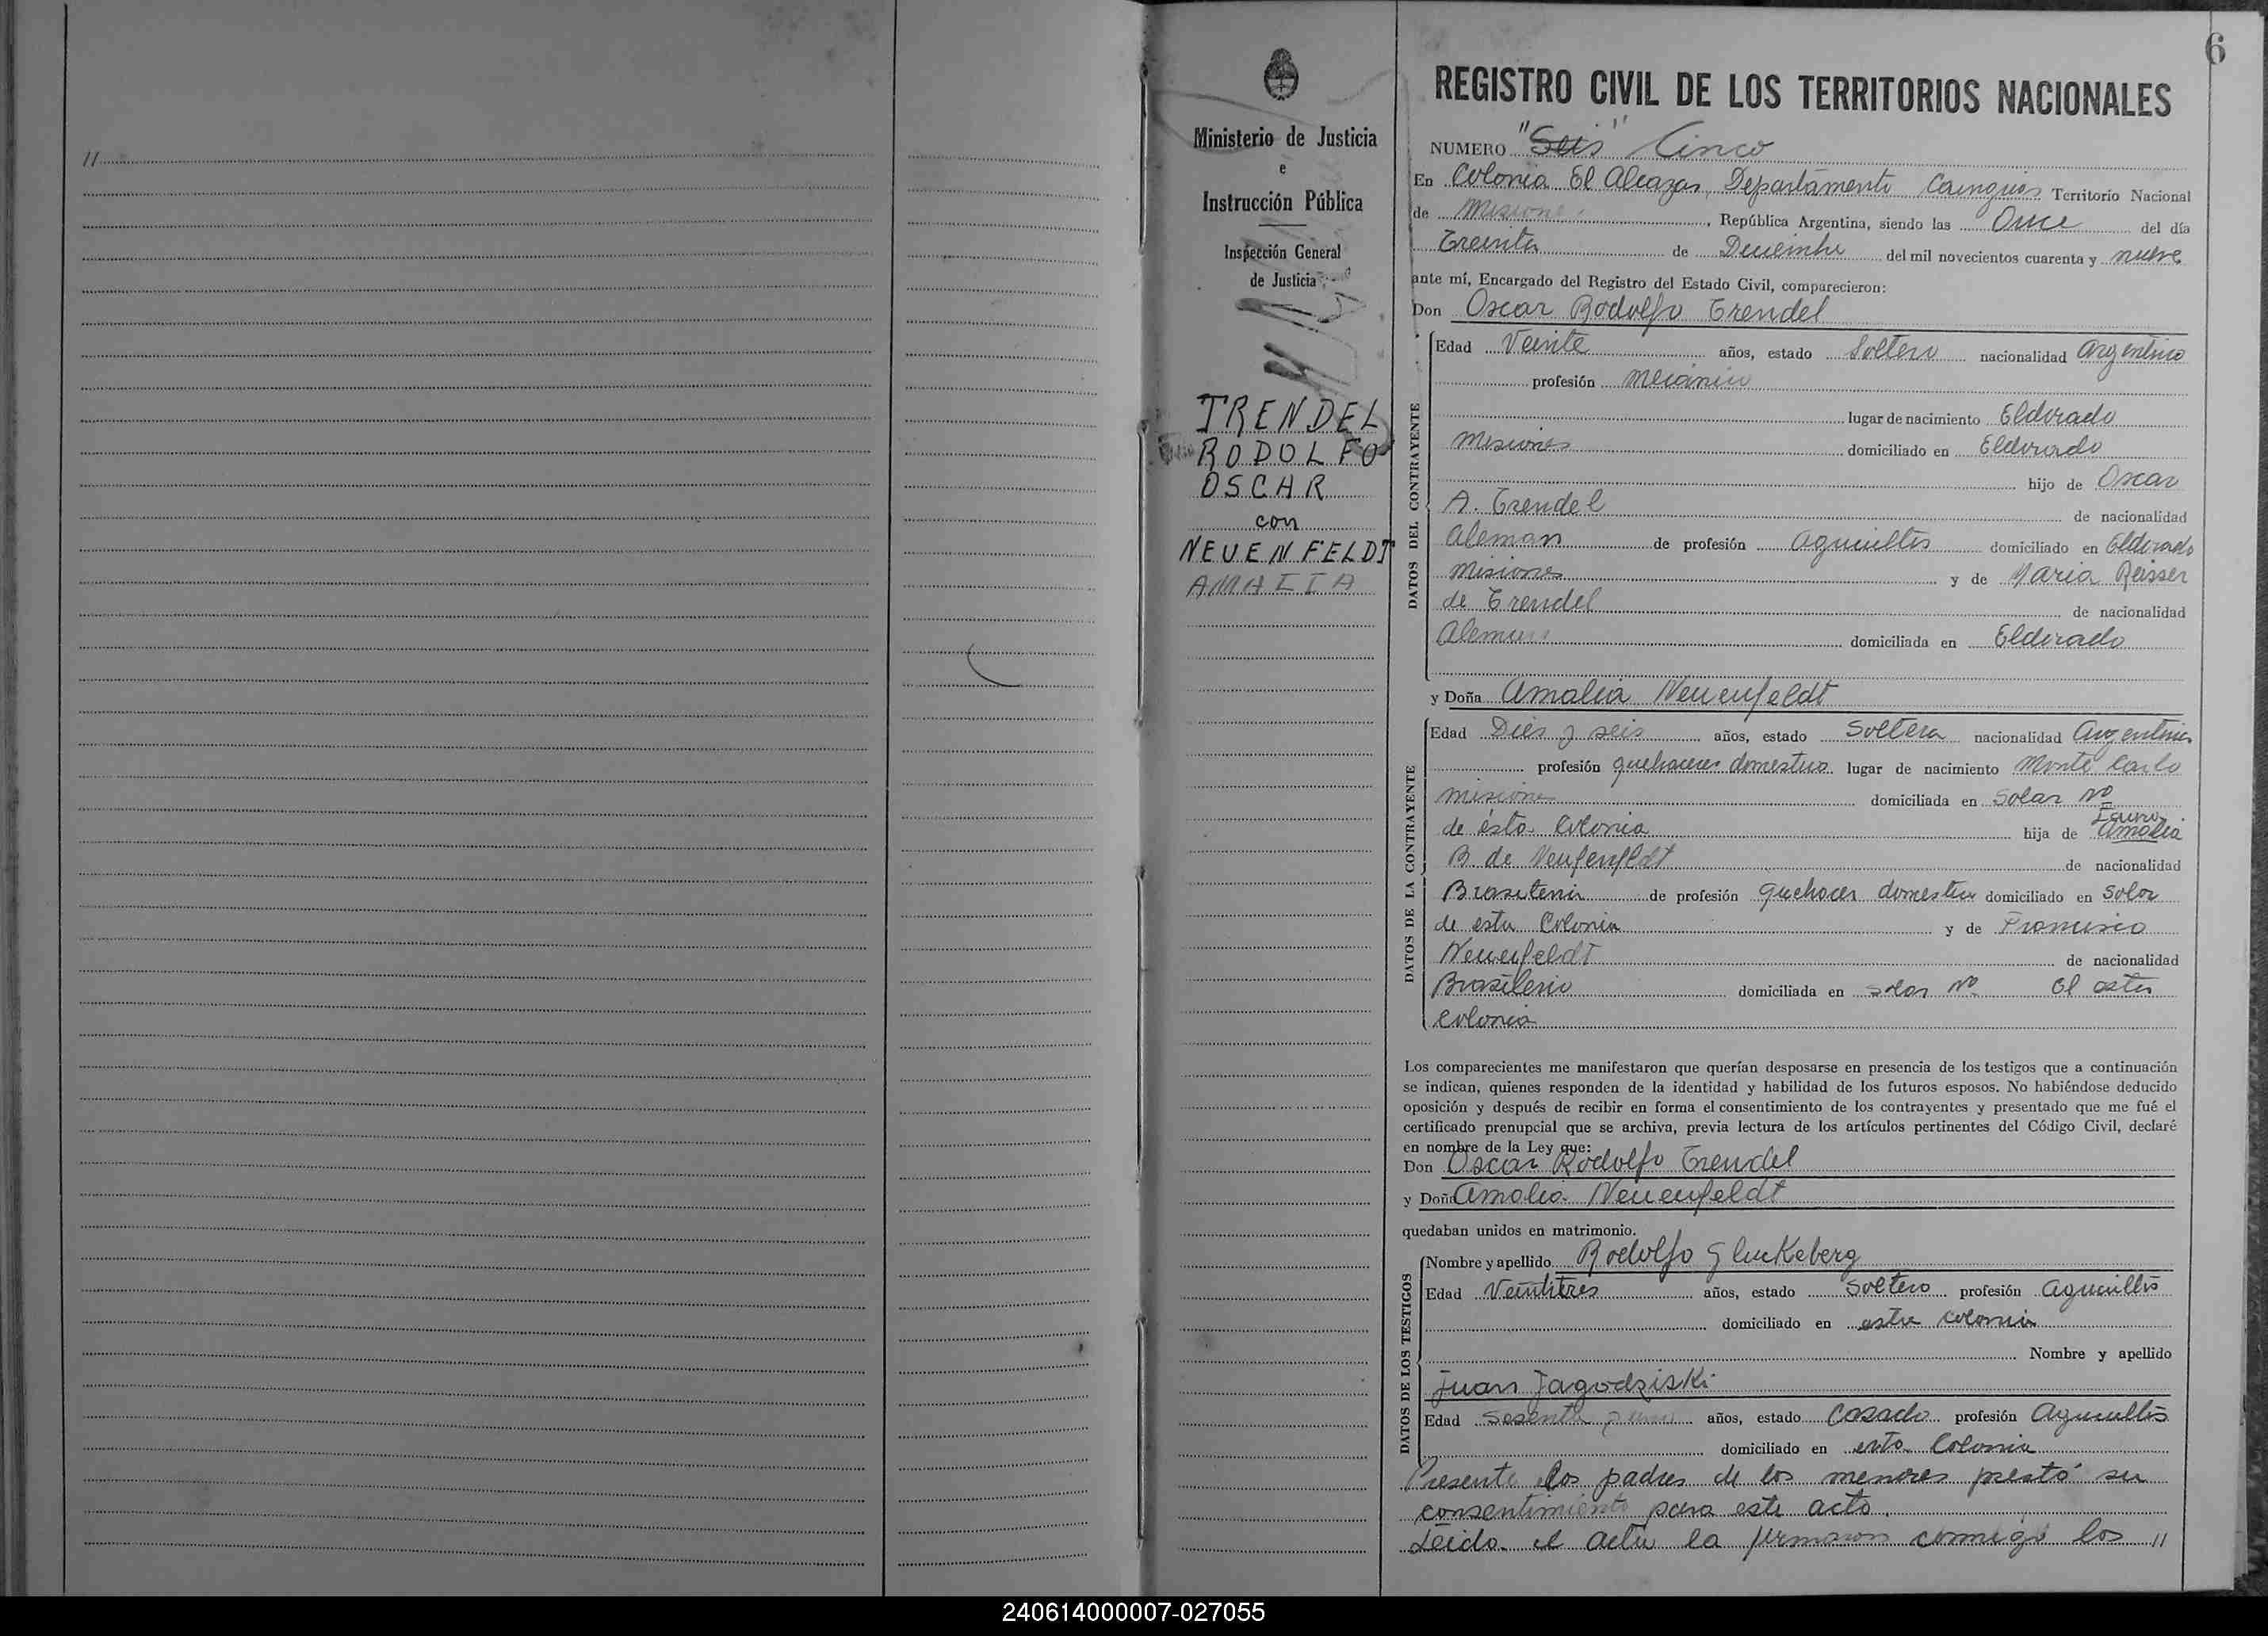 //
6
Ministerio de Justicia
e
Instrucción Pública
Inspección General
de Justicia
TRENDEL
RODOLFO
OSCAR
con
NEUENFELDT
AMALIA
REGISTRO CIVIL DE LOS TERRITORIOS NACIONALES
NUMERO "Seis" Cinco
En Colonia El Alcazar, Departamento Cainguas Territorio Nacional
de Misiones, República Argentina, siendo las Once del día
Treinta de Diciembre del mil novecientos cuarenta y nueve
ante mí, Encargado del Registro del Estado Civil, comparecieron:
Don Oscar Rodolfo Trendel
DATOS DEL CONTRAYENTE
Edad Veinte años, estado Soltero nacionalidad Argentino
profesión mecánico
lugar de nacimiento Eldorado
Misiones domiciliado en Eldorado
hijo de Oscar
A. Trendel de nacionalidad
Aleman de profesión Agricultor domiciliado en Eldorado
Misiones y de Maria Reisser
de Trendel de nacionalidad
Alemana domiciliada en Eldorado
y Doña Amalia Neuenfeldt
DATOS DE LA CONTRAYENTE
Edad Dies y seis años, estado Soltera nacionalidad Argentina
profesión quehaceres domesticos lugar de nacimiento Monte Carlo
Misiones domiciliada en Solar Nº
de ésta Colonia hija de Amalia
B. de Neufenfeldt de nacionalidad
Brasilenia de profesión Quehacer domestico domiciliado en Solar
de esta Colonia y de Francisco
Neuenfeldt de nacionalidad
Brasilenio domiciliada en solar Nº El esta
colonia
Los comparecientes me manifestaron que querían desposarse en presencia de los testigos que a continuación
se indican, quienes responden de la identidad y habilidad de los futuros esposos. No habiéndose deducido
oposición y después de recibir en forma el consentimiento de los contrayentes y presentado que me fué el
certificado prenupcial que se archiva, previa lectura de los artículos pertinentes del Código Civil, declaré
en nombre de la Ley que:
Don Oscar Rodolfo Trendel
y Doña Amalia Neuenfeldt
quedaban unidos en matrimonio.
DATOS DE LOS TESTIGOS
Nombre y apellido Rodolfo Gluckeberg
Edad Veintitres años, estado Soltero profesión Agricultor
domiciliado en esta colonia
Nombre y apellido
Juan Jagodziski
Edad Sesenta y uno años, estado Casado profesión Agricultor
domiciliado en esta Colonia
Presente los padres de los menores prestó su
consentimiento para este acto.
Leido el acta la firmaron conmigo los //
240614000007-027055